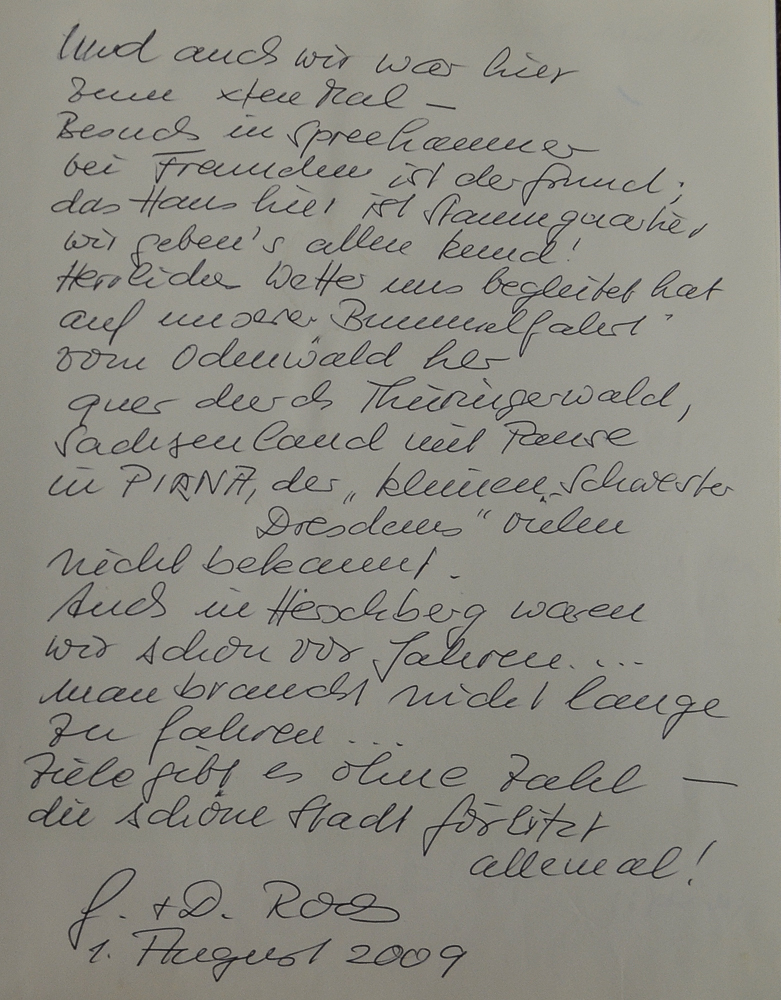 Und auch wir war hier
zum xten Mal —
Besuch in Spreehammer
bei Freunden ist der Grund;
das Haus hier ist Stammquartier
wir geben's allen kund!
Herrliches Wetter uns begleitet hat
auf unserer "Bummelfahrt"
vom Odenwald her
quer durch Thüringerwald,
Sachsenland mit Pause
in PIRNA, der „kleinen Schwester
Dresdens" vielen
nicht bekannt.
Auch in Herschberg waren
wir schon vor Jahren....
man braucht nicht lange
zu fahren...
Ziele gibt es ohne Zahl —
die schöne Stadt Görlitzt
allemal!
G. + D. Roos
1. August 2009